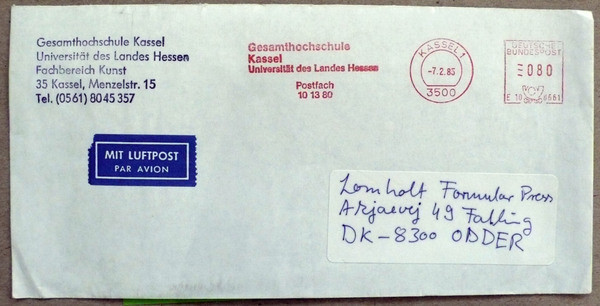 Gesamthochschule Kassel
Universität des Landes Hessen
Fachbereich Kunst
35 Kassel, Menzelstr. 15
Tel. (0561) 8045 357
Gesamthochschule
Kassel
Universität des Landes Hessen
Postfach
10 13 80
KASSEL 1
-7.2.85
3500
DEUTSCHE
BUNDESPOST
080
MIT LUFTPOST
PAR AVION
Lomholt Formular Press
Akjaevej 49 Falling
DK-8300 ODDER